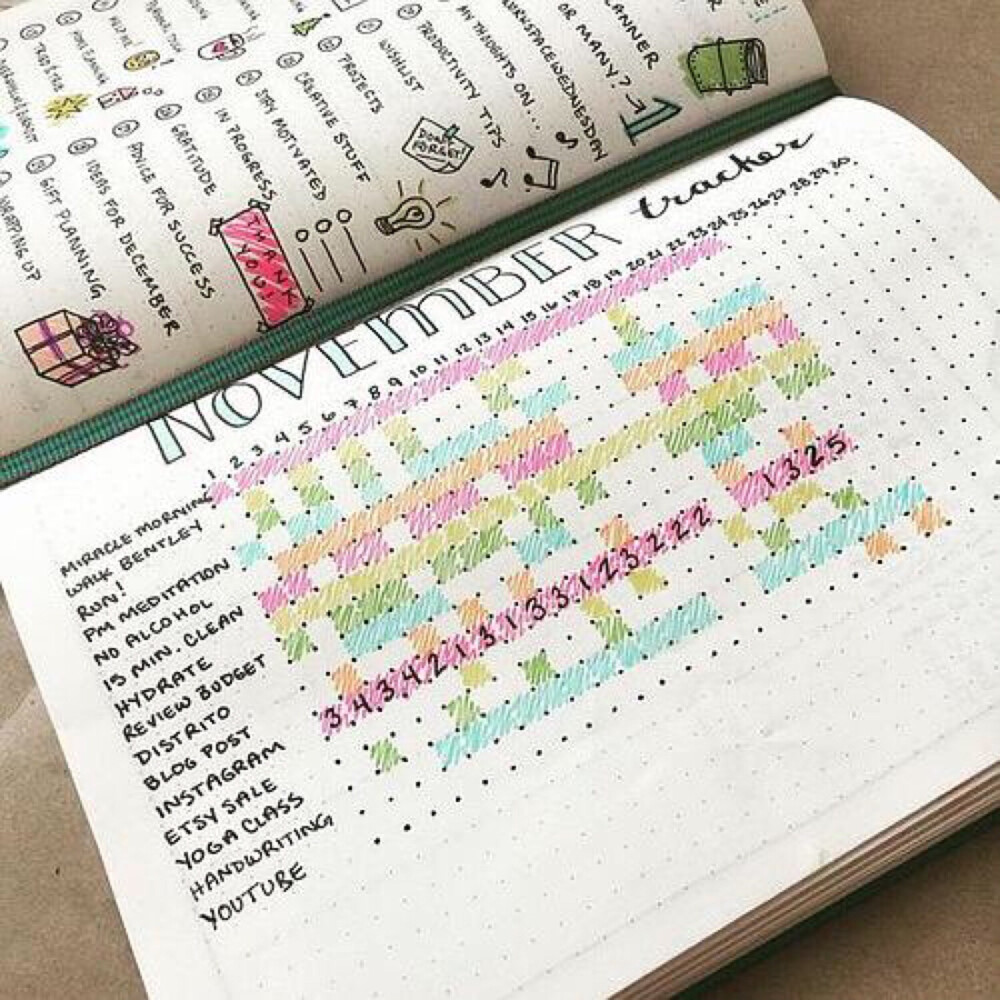 WRAPPING UP
GIFT PLANNING
IDEAS FOR DECEMBER
ADVICE FOR SUCCESS
GRATITUDE
IN PROGRESS
STAY MOTIVATED
CREATIVE STUFF
PROJECTS
WISHLIST
PRODUCTIVITY TIPS
MY THOUGHTS ON...
WORKSPACEWEDNESDAY
OR MANY?
THANK
YOU!
DON'T
FORGET!
NOVEMBER tracker
1 2 3 4 5 6 7 8 9 10 11 12 13 14 15 16 17 18 19 20 21 22 23 24 25 26 27 28 29 30
MIRACLE MORNING
WALK BENTLEY
RUN!
PM MEDITATION
NO ALCOHOL
15 MIN. CLEAN
HYDRATE
REVIEW BUDGET
DISTRITO
BLOG POST
INSTAGRAM 3 4 3 4 2 1 3 1 3 3 1 2 3 2 2 2 1 3 2 5
ETSY SALE
YOGA CLASS
HANDWRITING
YOUTUBE